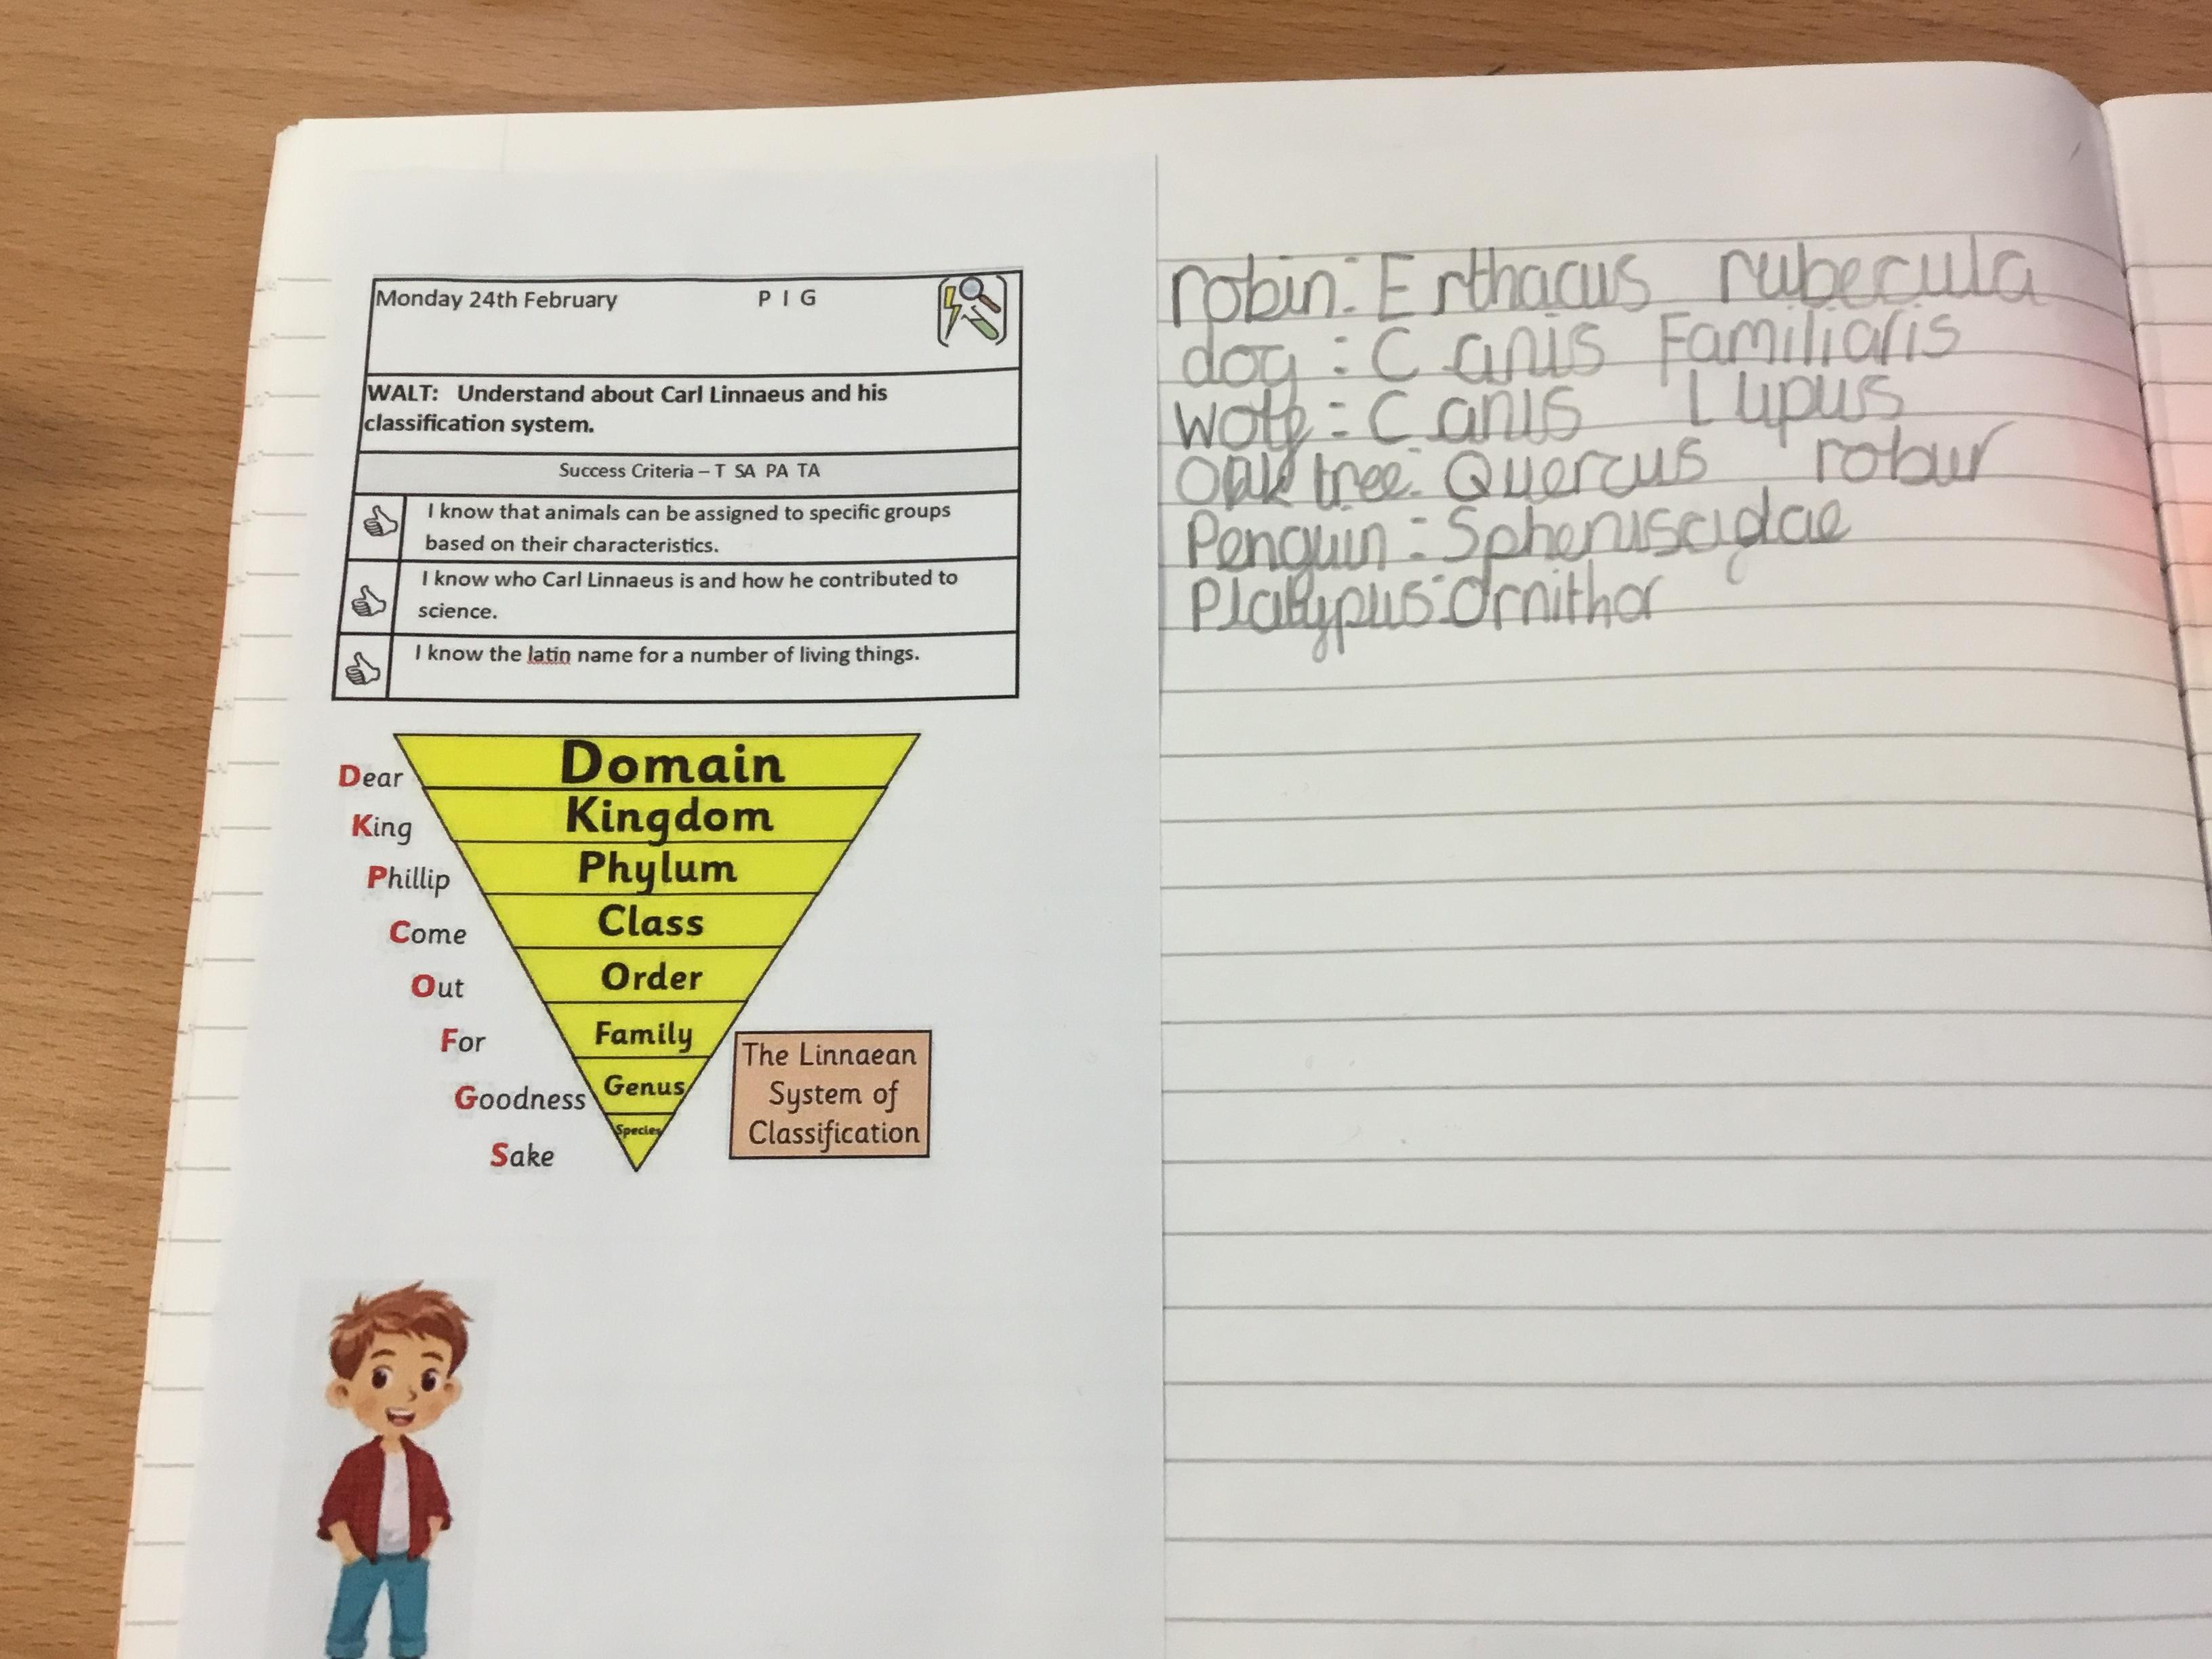 Monday 24th February P I G
WALT: Understand about Carl Linnaeus and his
classification system.
Success Criteria – T SA PA TA
I know that animals can be assigned to specific groups
based on their characteristics.
I know who Carl Linnaeus is and how he contributed to
science.
I know the latin name for a number of living things.
Dear Domain
King Kingdom
Phillip Phylum
Come Class
Out Order
For Family
Goodness Genus
Sake Species
The Linnaean
System of
Classification
robin: Erthacus rubecula
dog: Canis Familiaris
Wolf: Canis Lupus
Oak tree: Quercus robur
Penguin: Spheniscidae
Platypus: Ornithor